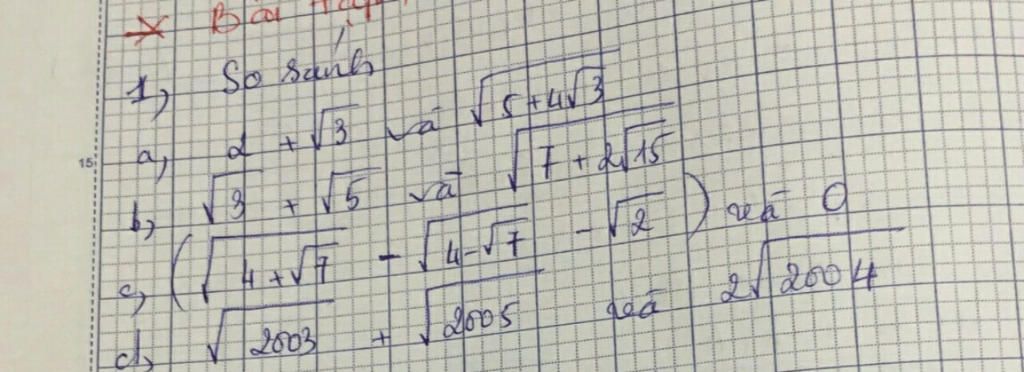 * Bài tập
1, So sánh
a, 2 + √3 và √(5 + 4√3)
b, √3 + √5 và √(7 + 2√15)
c, (√(4 + √7) - √(4 - √7) - √2) và 0
d, √2003 + √2005 và 2√2004
15